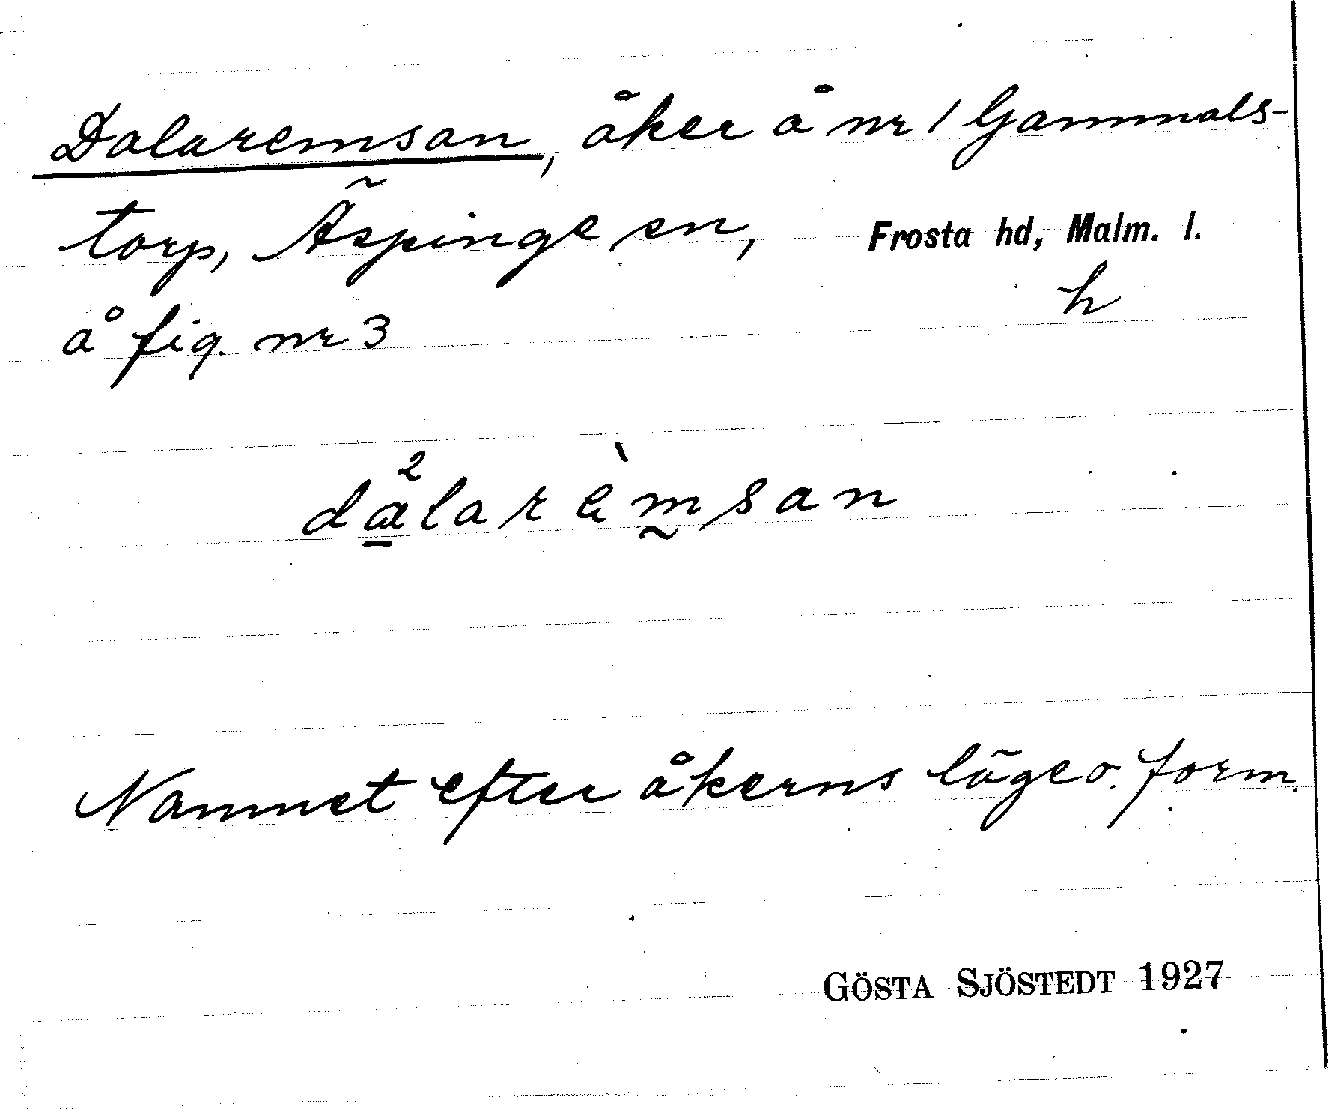 Dalaremsan, åker å nr 1 Gammals-
torp, Äspinge sn, Frosta hd, Malm. l.
å fig. nr 3 h
dalaremsan
Namnet efter åkerns läge o. form.
GÖSTA SJÖSTEDT 1927